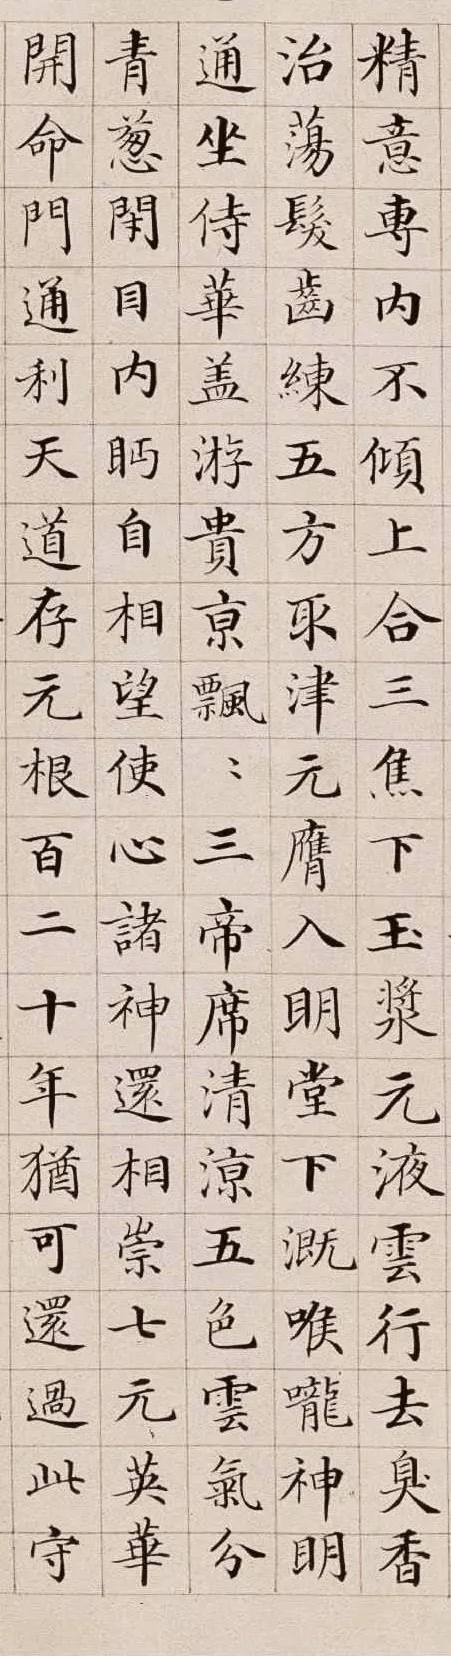 精意專內不傾上合三焦下玉漿元液雲行去臭香
治蕩髮齒練五方取津元膺入明堂下溉喉嚨神明
通坐侍華盖游貴京飄〻三帝席清涼五色雲氣分
青蔥閉目內眄自相望使心諸神還相崇七元〻英華
開命門通利天道存元根百二十年猶可還過此守